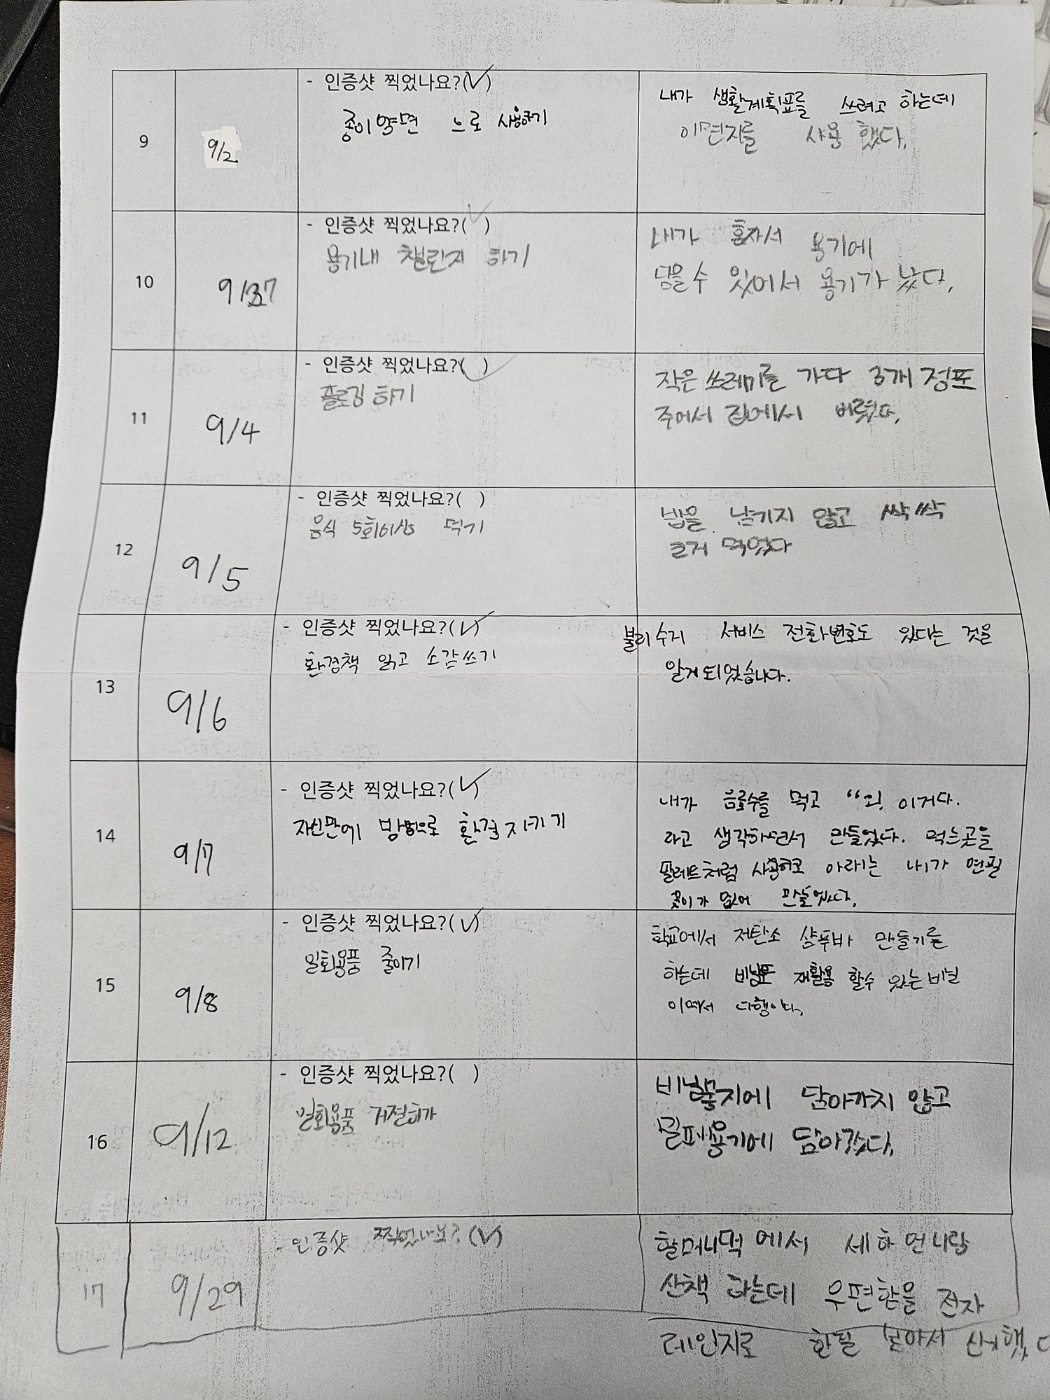 9
9/2
- 인증샷 찍었나요?(✓)
종이 양면 으로 사용하기
내가 생활계획표를 쓰려고 하는데
이면지를 사용 했다.
10
- 인증샷 찍었나요?(✓)
용기내 챌린지 하기
내가 혼자서 용기에
담을수 있어서 용기가 났다.
11
9/4
- 인증샷 찍었나요?( )
플로깅 하기
작은 쓰레기를 가다 3개 정도
주어서 집에서 버렸다.
12
9/5
- 인증샷 찍었나요?( )
음식 5회이상 먹기
밥을 남기지 않고 싹싹
먹었다
13
9/6
- 인증샷 찍었나요?(✓)
환경책 읽고 소감쓰기
수거 서비스 전화번호도 있다는 것을
알게되었습니다.
14
9/7
- 인증샷 찍었나요?(✓)
자신만에 방법으로 환경지키기
내가 음료수를 먹고 “오! 이거다.
라고 생각하면서 만들었다. 먹는곳을
팔레트처럼 아래는 내가 연필
꽂이가 없어 만들었다.
15
9/8
- 인증샷 찍었나요?(✓)
일회용품 줄이기
학교에서 저탄소 샴푸바 만들기를
하는데 비닐도 재활용 할수 있는 비닐
이여서 다행이다.
16
9/12
- 인증샷 찍었나요?( )
일회용품 거절하기
비닐봉지에 담아가지 않고
밀폐용기에 담아갔다.
17
9/29
- 인증샷 찍었나요?(✓)
할머니댁 에서 세하언니랑
산책 하는데 우편함을 전자
레인지로